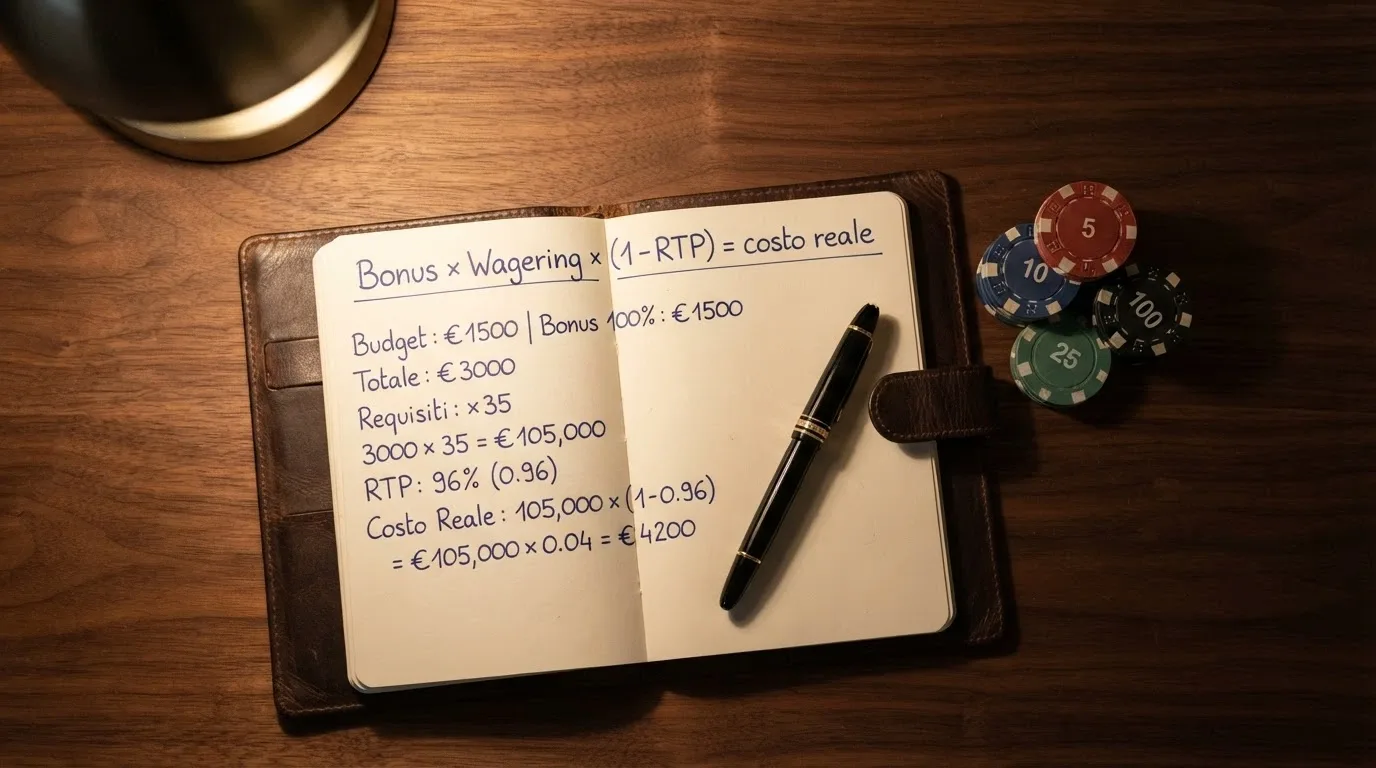 Bonus × Wagering × (1-RTP) = costo reale
Budget: €1500 | Bonus 100%: €1500
Totale: €3000
Requisiti: ×35
3000 × 35 = €105,000
RTP: 96% (0.96)
Costo Reale: 105,000 × (1-0.96)
= €105,000 × 0.04 = €4200
5
10
100
25